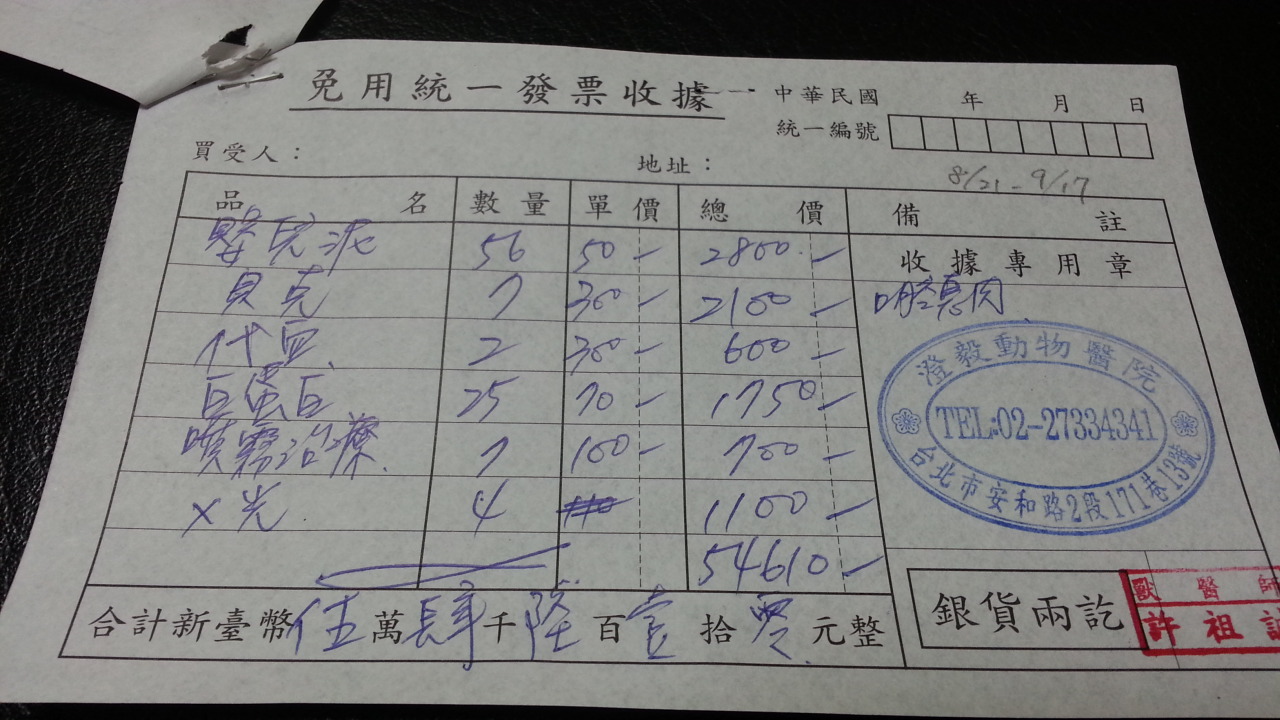 免用統一發票收據
中華民國 年 月 日
統一編號
買受人：
地址：
8/21 - 9/17
品名 數量 單價 總價 備註
嬰兒泥 56 50 - 2800 -
收據專用章
貝克 7 300 - 2100 -
口腔息肉
代血 2 300 - 600 -
白蛋白 25 70 - 1750 -
噴霧治療 7 100 - 700 -
X光 4 1100 -
54610 -
澄毅動物醫院
TEL:02-27334341
台北市安和路2段171巷13號
合計新臺幣伍萬肆千陸百壹拾零元整
銀貨兩訖
獸醫師
許祖